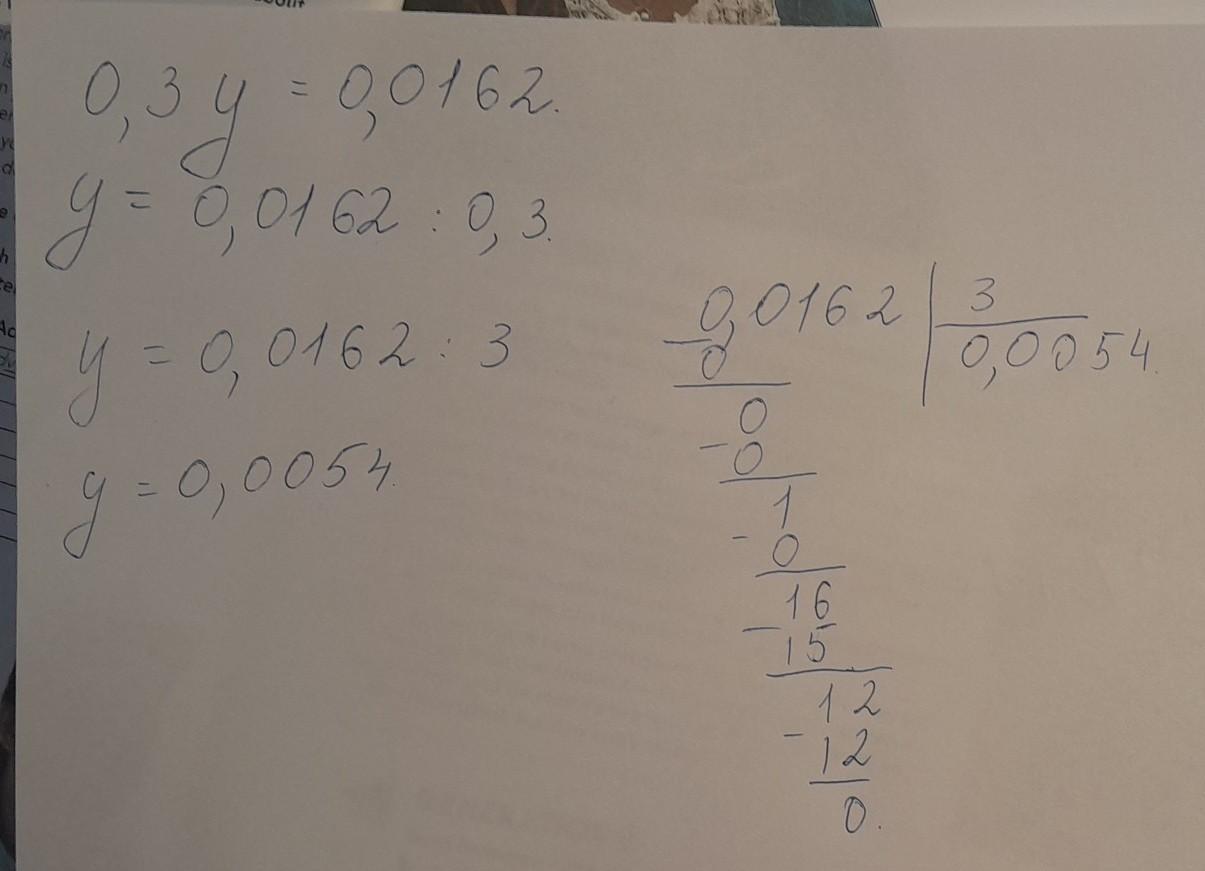 0,3 y = 0,0162.
y = 0,0162 : 0,3.
y = 0,0162 : 3
y = 0,0054.
0,0162 | 3
- 0 | 0,0054.
0
- 0
1
- 0
16
- 15
12
- 12
0.